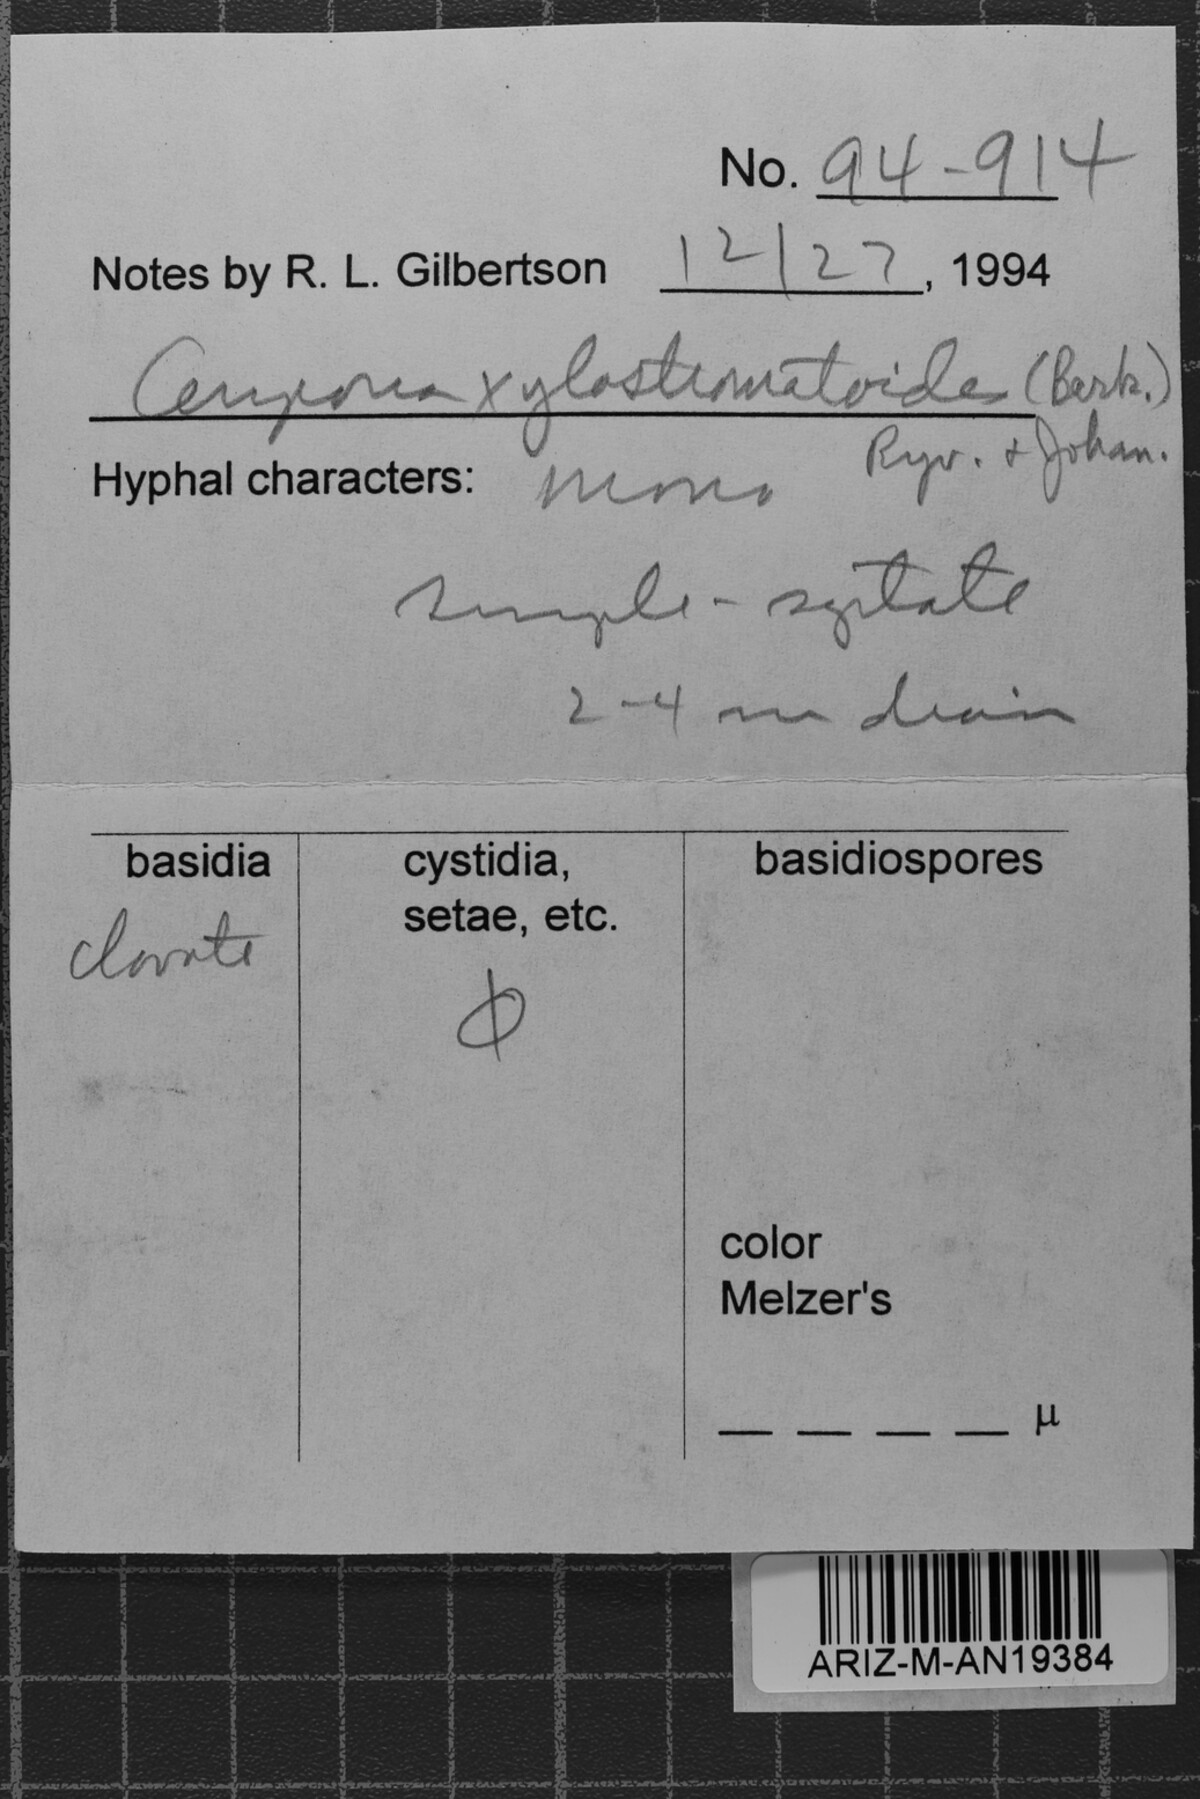 No. 94-914
Notes by R. L. Gilbertson 12/27, 1994
Ceriporia xylostromatoides (Berk.)
Ryv. & Johan.
Hyphal characters: mono
simple-septate
2-4 µm diam
basidia
cystidia, setae, etc.
basidiospores
clavate
ϕ
color
Melzer's
_ _ _ _ µ
ARIZ-M-AN19384